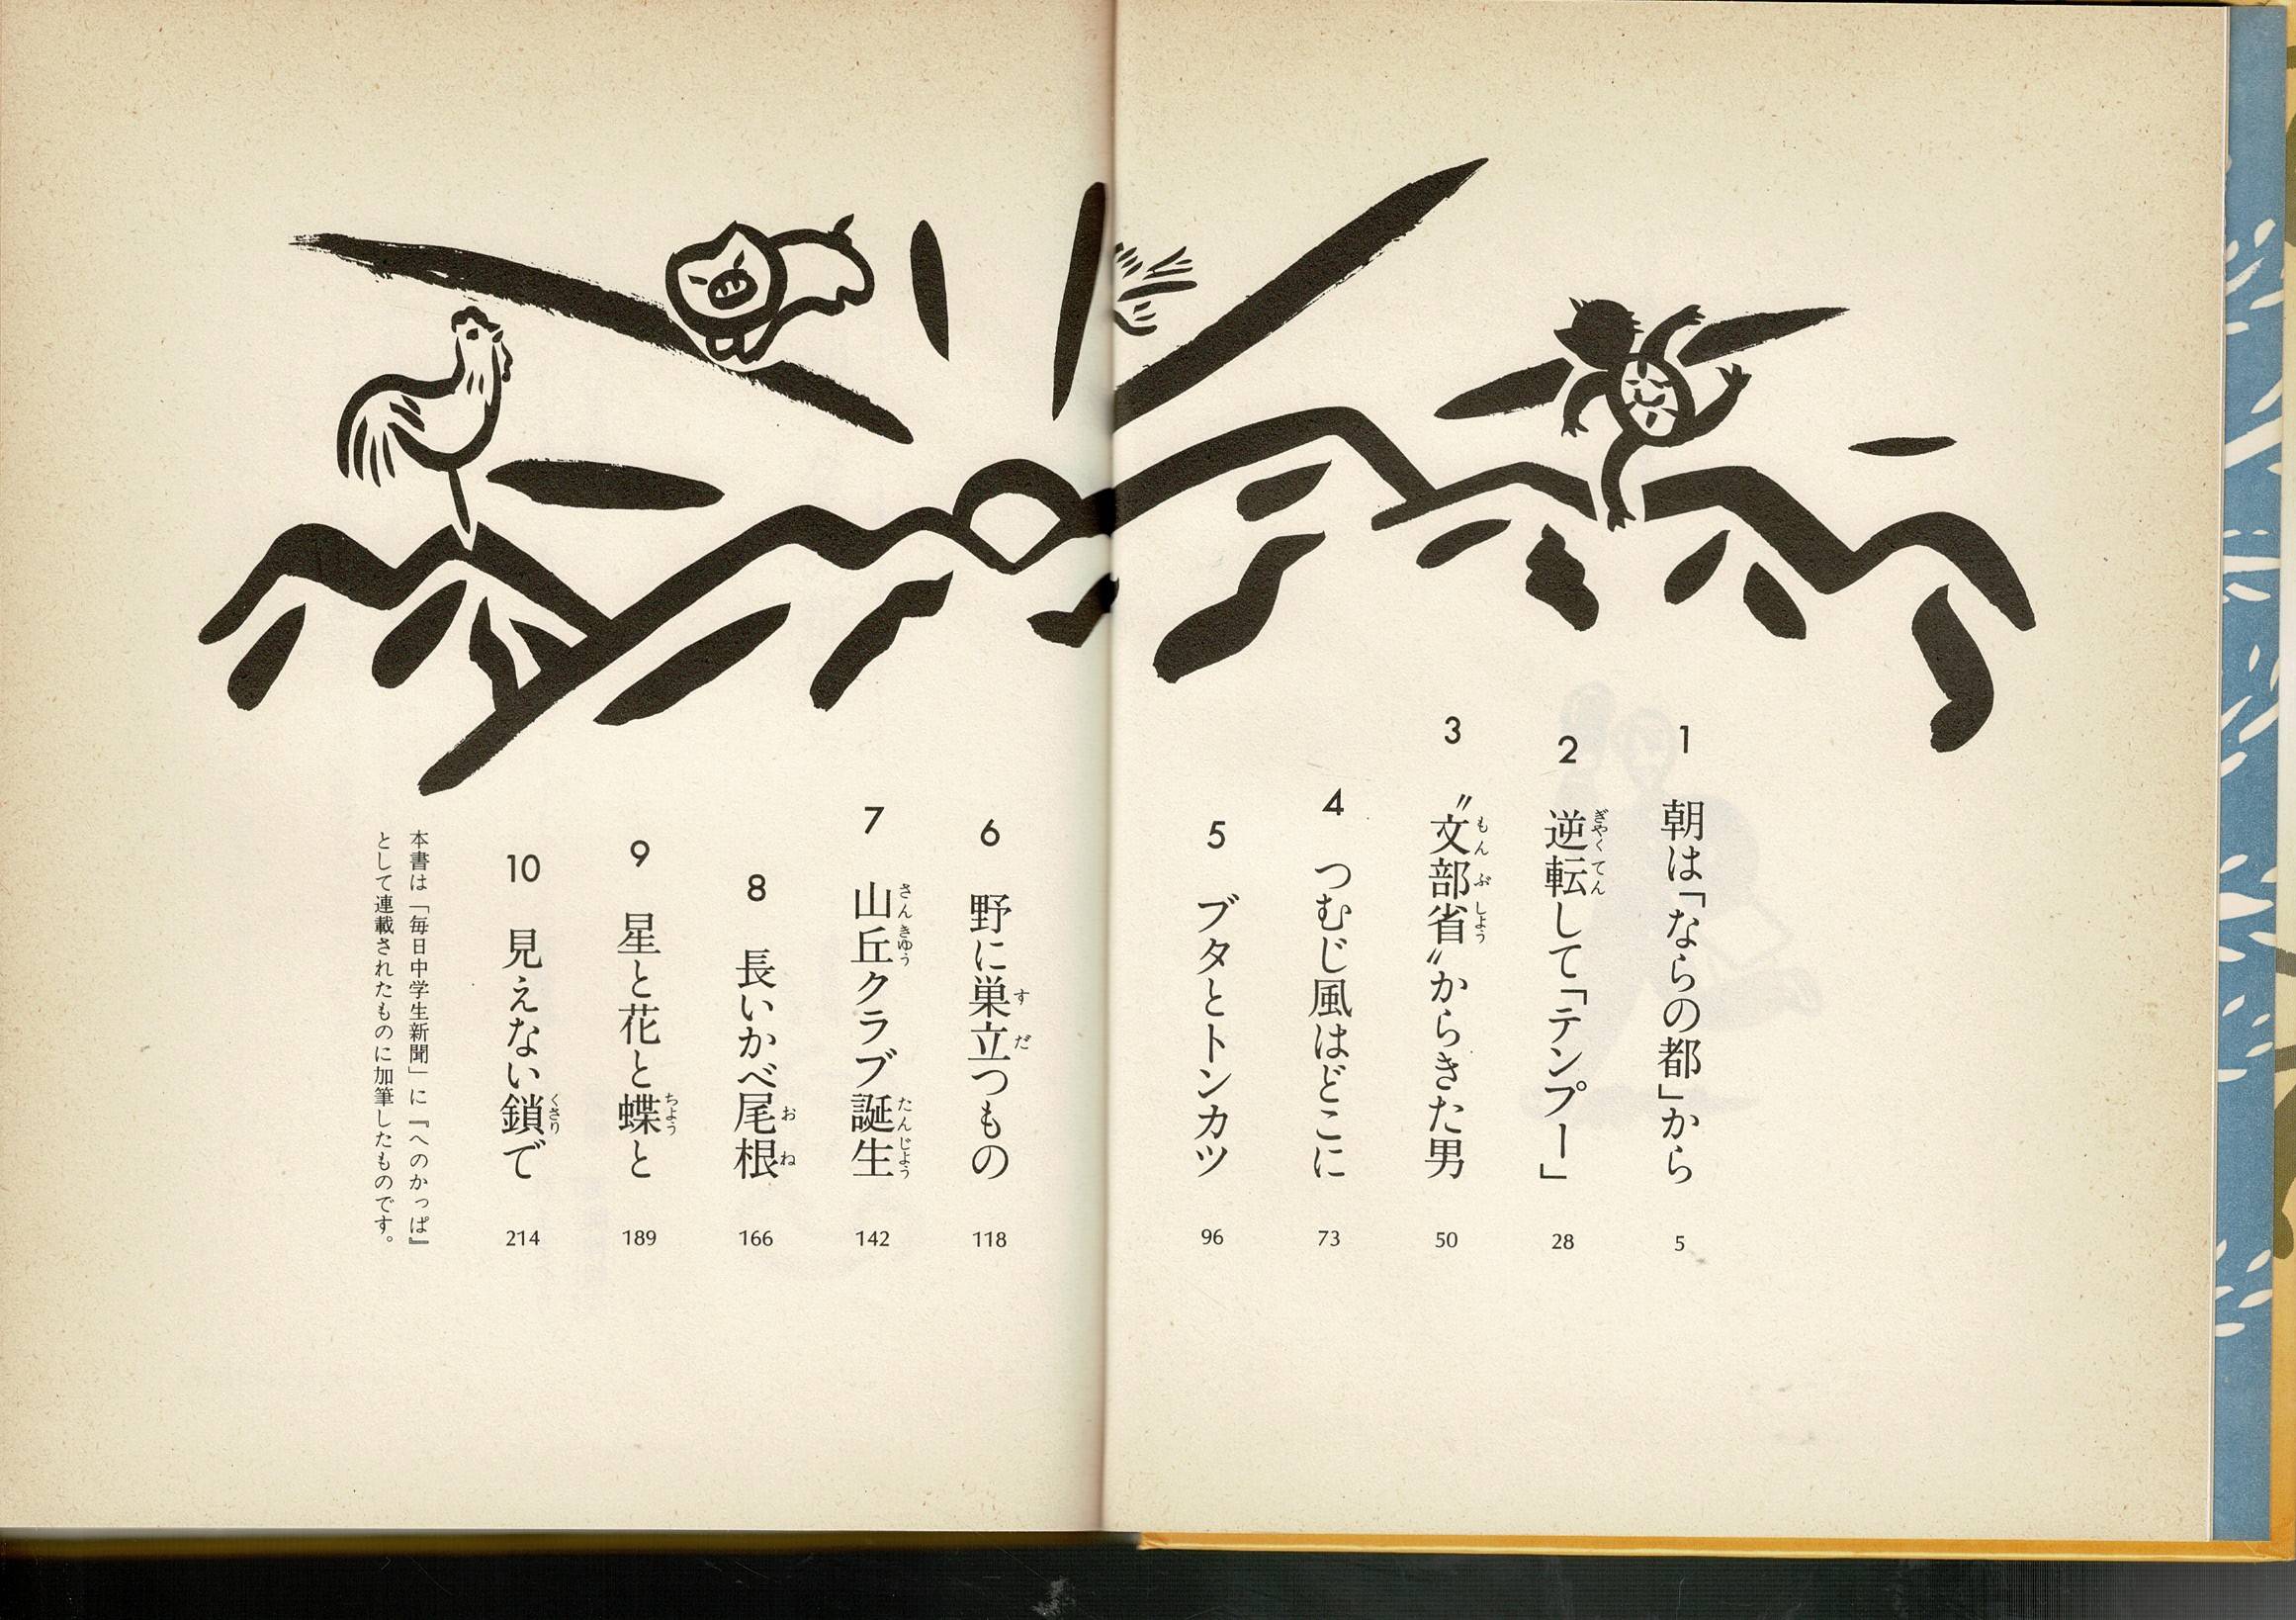 1 朝は「ならの都」から 5
2 逆転して「テンプー」 28
3 〝文部省〟からきた男 50
4 つむじ風はどこに 73
5 ブタとトンカツ 96
6 野に巣立つもの 118
7 山丘クラブ誕生 142
8 長いかべ尾根 166
9 星と花と蝶と 189
10 見えない鎖で 214
本書は「毎日中学生新聞」に『へのかっぱ』
として連載されたものに加筆したものです。